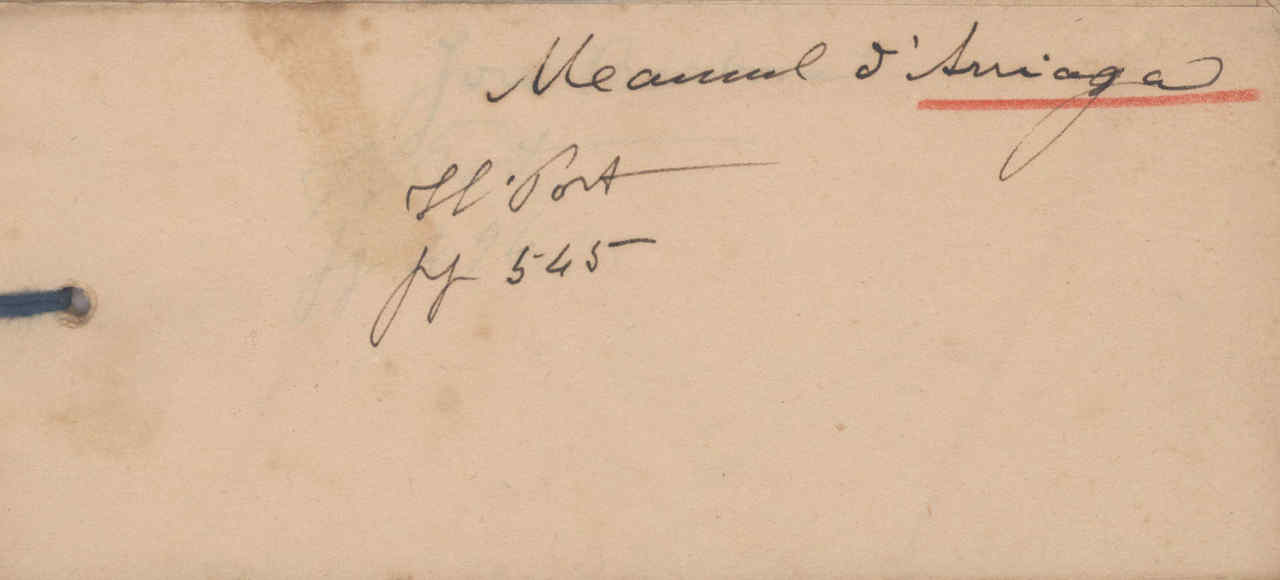 Manuel d'Arriaga
Hl. Port
pg 545